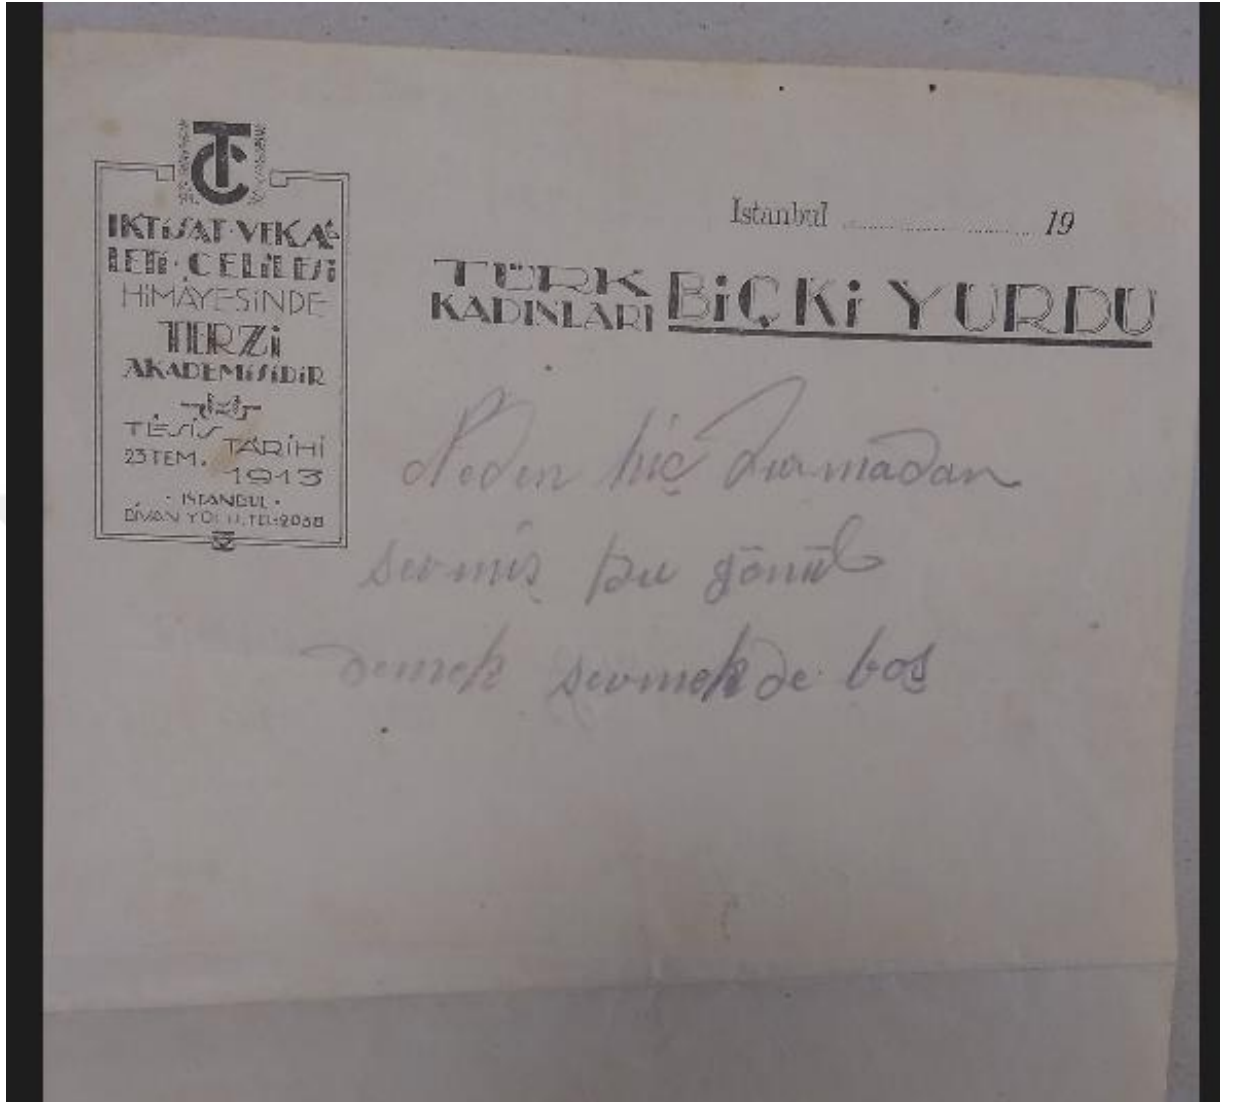 TC
İKTİSAT·VEKÂ
LETİ·ÇELİLESİ
HİMAYESİNDE
TERZİ
AKADEMİSİDİR
TESİS TARİHİ
23 TEM. 1913
· İSTANBUL ·
DİVAN YOLU. TEL: 2038
Istanbul .......................... 19
TÜRK
KADINLARI BİÇKİ YURDU
Neden hiç durmadan
sevmiş bu gönül
demek sevmekde boş